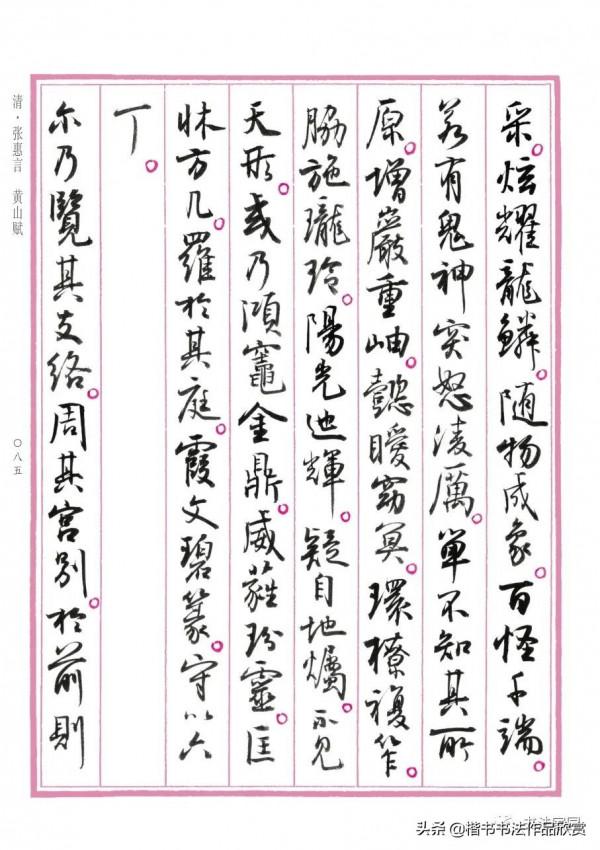 采。炫耀龍鱗。随物成象。百怪千端。
若有鬼神突怒凌厲。單不知其所
原。增巖重岫。懿曖窈冥。環橑複笮。
脇施瓏玲。陽光迆輝。疑自地爥。不見
天形。或乃澒竈金鼎。威蕤玢靈。匡
牀方几。羅於其庭。霞文碧篆。守以六
丁。
尒乃覽其支络。周其宫别。於前則
清·张惠言 黄山赋
〇八五
头条 @楷书书法作品欣赏